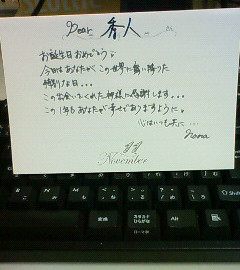 Dear 秀人
お誕生日おめでとう
今日はあなたがこの世界に舞い降りた
特別な日...
この出会いをくれた神様に感謝します...
この1年もあなたが幸せでありますように。
心はいつも共に...
Nana
November
変換
カタカナ
ひらがな
Alt
Shift